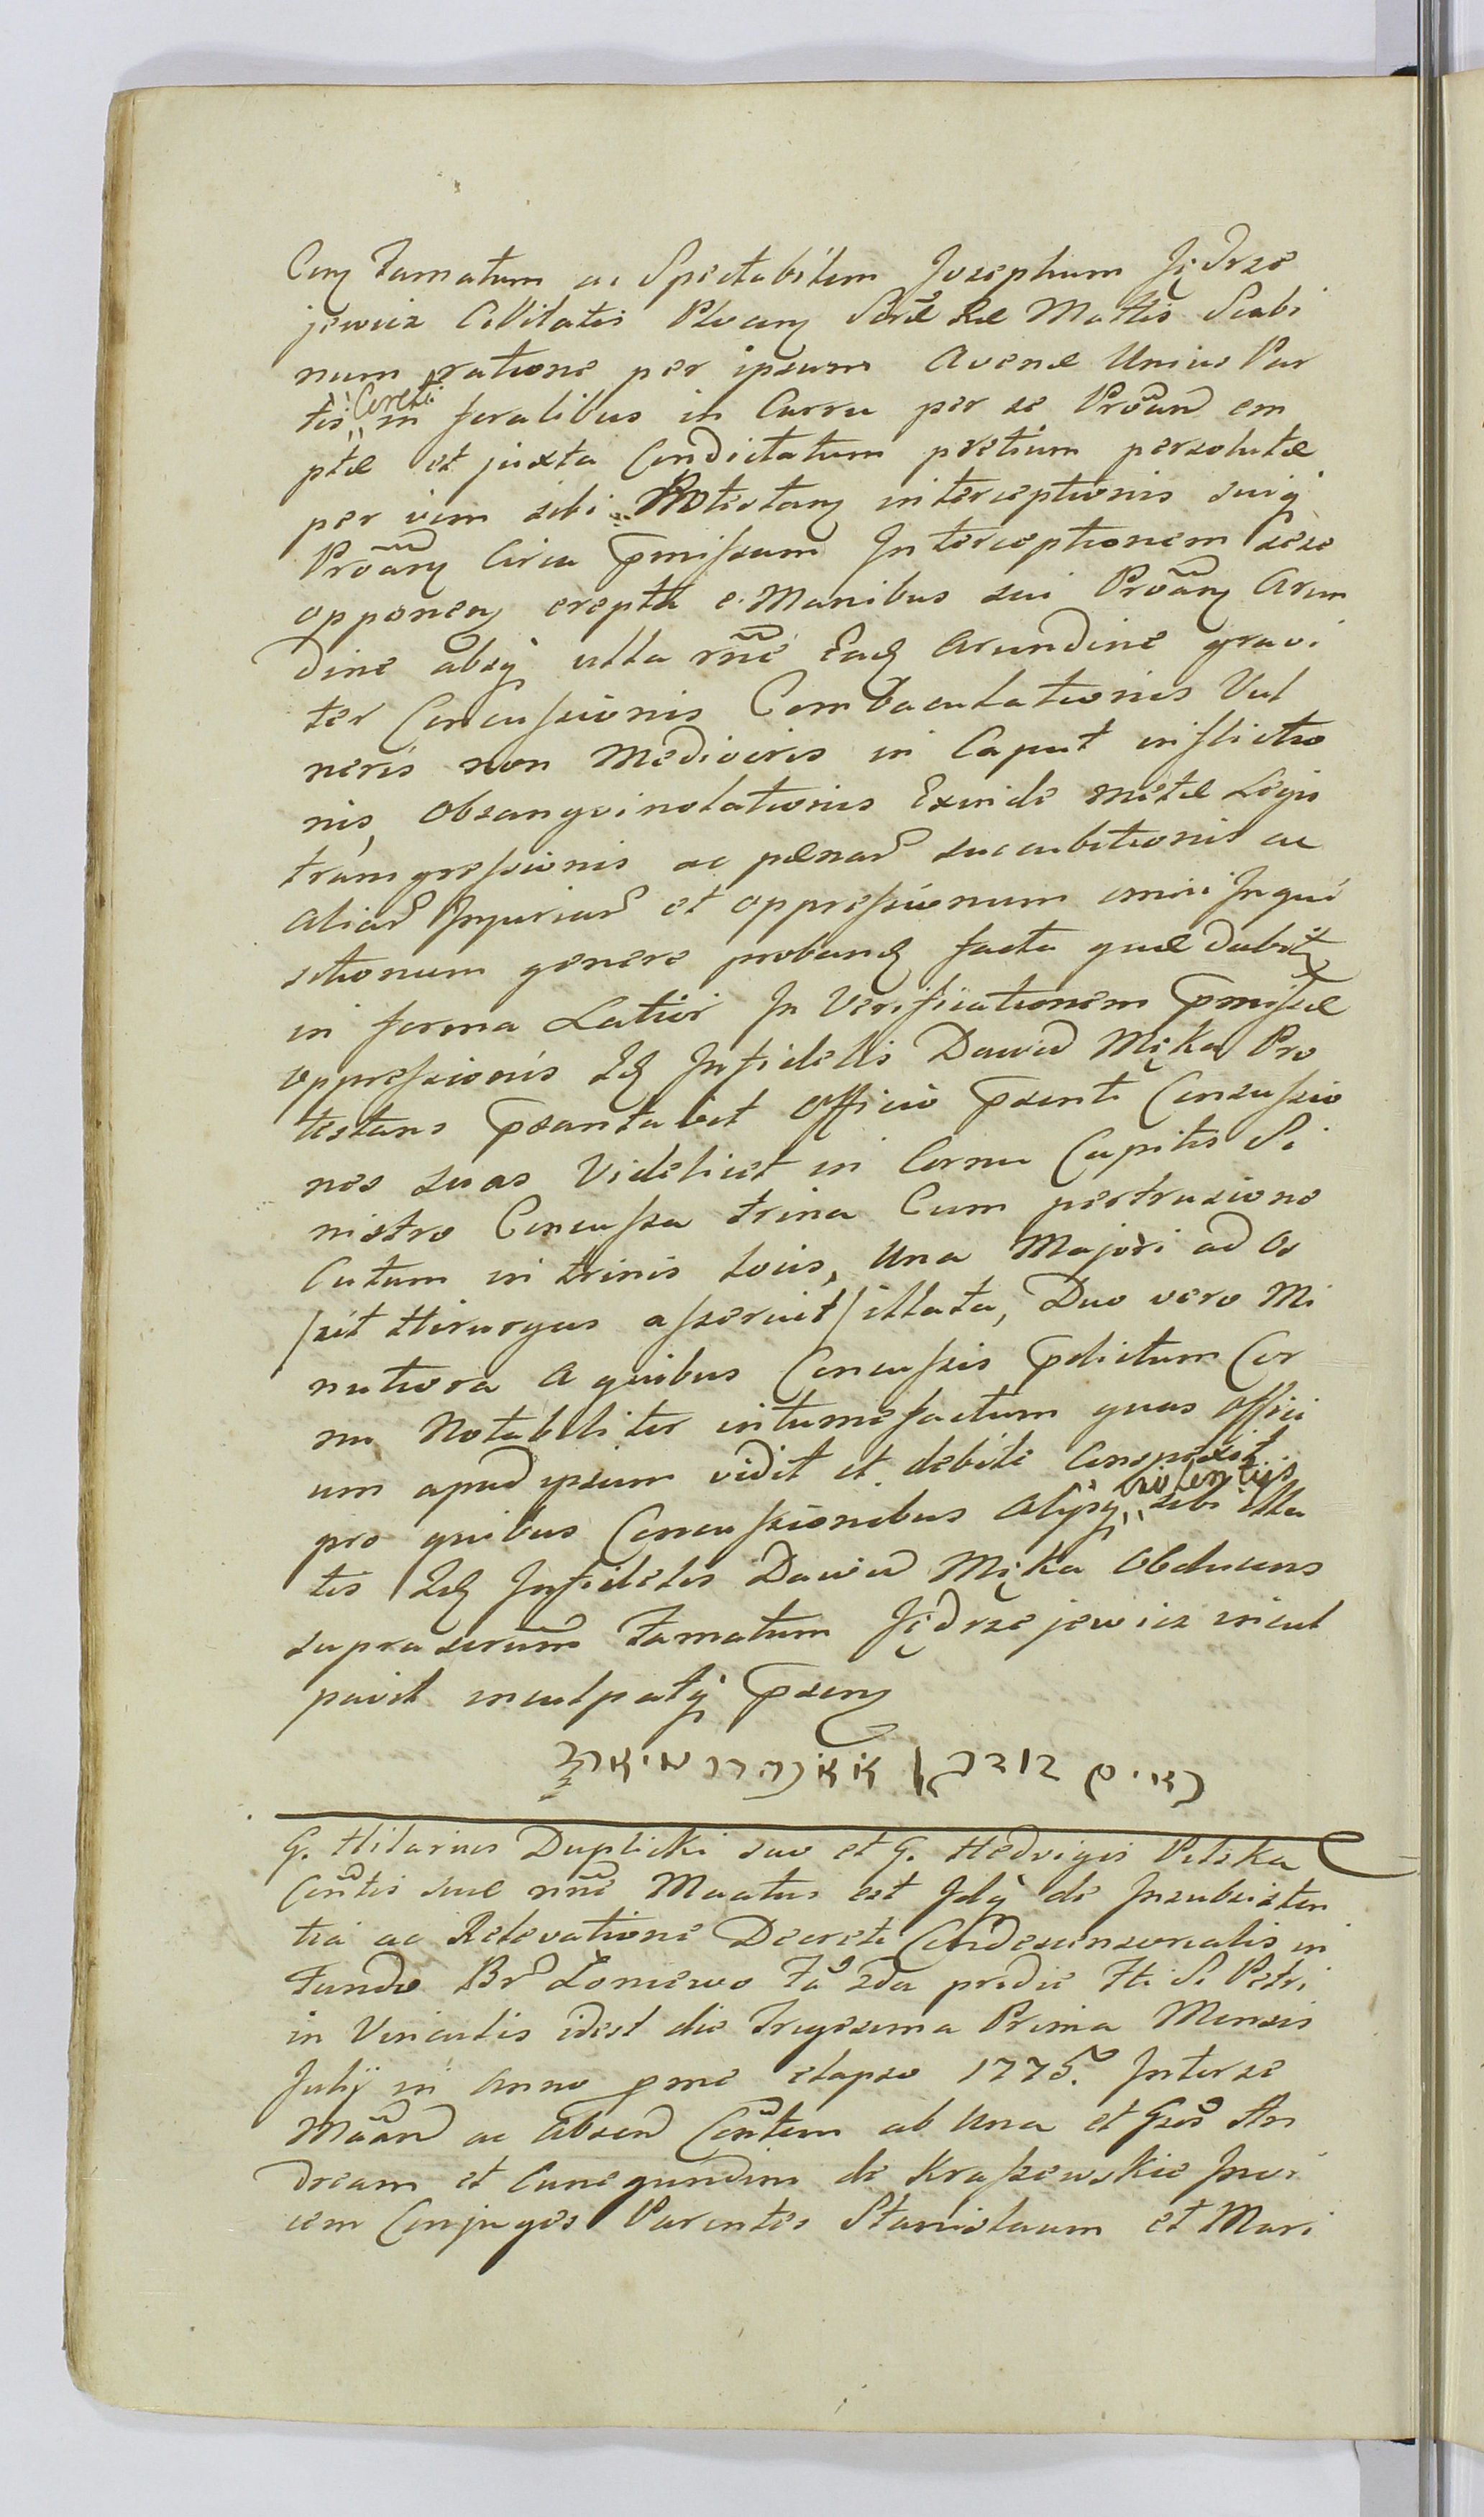 Cong Famatum ac Spectabilem Josephum Jędrze
jewicz Civitatis Plocen Seræ Ræ Mattis Scabi
num ratione per ipsum Avenæ Unius Par
tis "Coretci" in foralibus in Curru per se Prõtand em
ptæ et juxta Condictatum pretium persolutæ
per vim sibi Protestanz interceptionis suiq
Prõtanz Circa pmissam Interceptionem sese
opponenz erepta e Manibus sui Prõtanz Arun
dine absq ulla rñe Eadz Arundine gravi
ter Concussionis Combaculationis Vul
neris non Mediocris in Caput inflictio
nis, Obsangvinolationis Exinde metæ Legis
transgressionis ac pænar succubitionis ac
aliar Injuriar et oppressionum omni Inqui
sitionum genere proband facta quæ dabitur
in forma Latiori In Verificationem pmissæ
oppressionis Idz Infidelis Dawid Mięka Pro
testans psentabit Officio psenti Concussio
nes suas Videlicet in Cornu Capitis Si
nistro Concussa trina Cum pertrusione
Cutum in trinis locis, Una Majori ad Os
/uit Hirurgus asseruit/ illata, Duo vero Mi
nutiora a quibus Concussis pdictum Cor
nu Notabiliter intumefactum quas Offici
um apud ipsum vidit et debite conspexit
pro quibus Concussionibus alijsq "violentijs" sibi illa
tis Idz Infidelis Dawid Mięka Obducens
suprascriptum Famatum Jędrzejewicz incul
pavit inculpatq psenz
G. Hilarius Duplicki suo et G. Hedvigis Pilska
Conñtis suæ nñe Maatus est Idq de Insubsisten
tia ac Relevatione Decreti Condescensorialis in
Fundo Bnr Łoniewo Fa 2da pridie Fti S. Petri
in Vinculis idest die Trigesima Prima Mensis
Julij in Anno pme elapso 1775. Inter se
Mãand ac absen Conñtem ab Una et Gsos An
dream et Cunegundim de Kraszewskie Invi
cem Conjuges Parentes Stanislaum et Mari